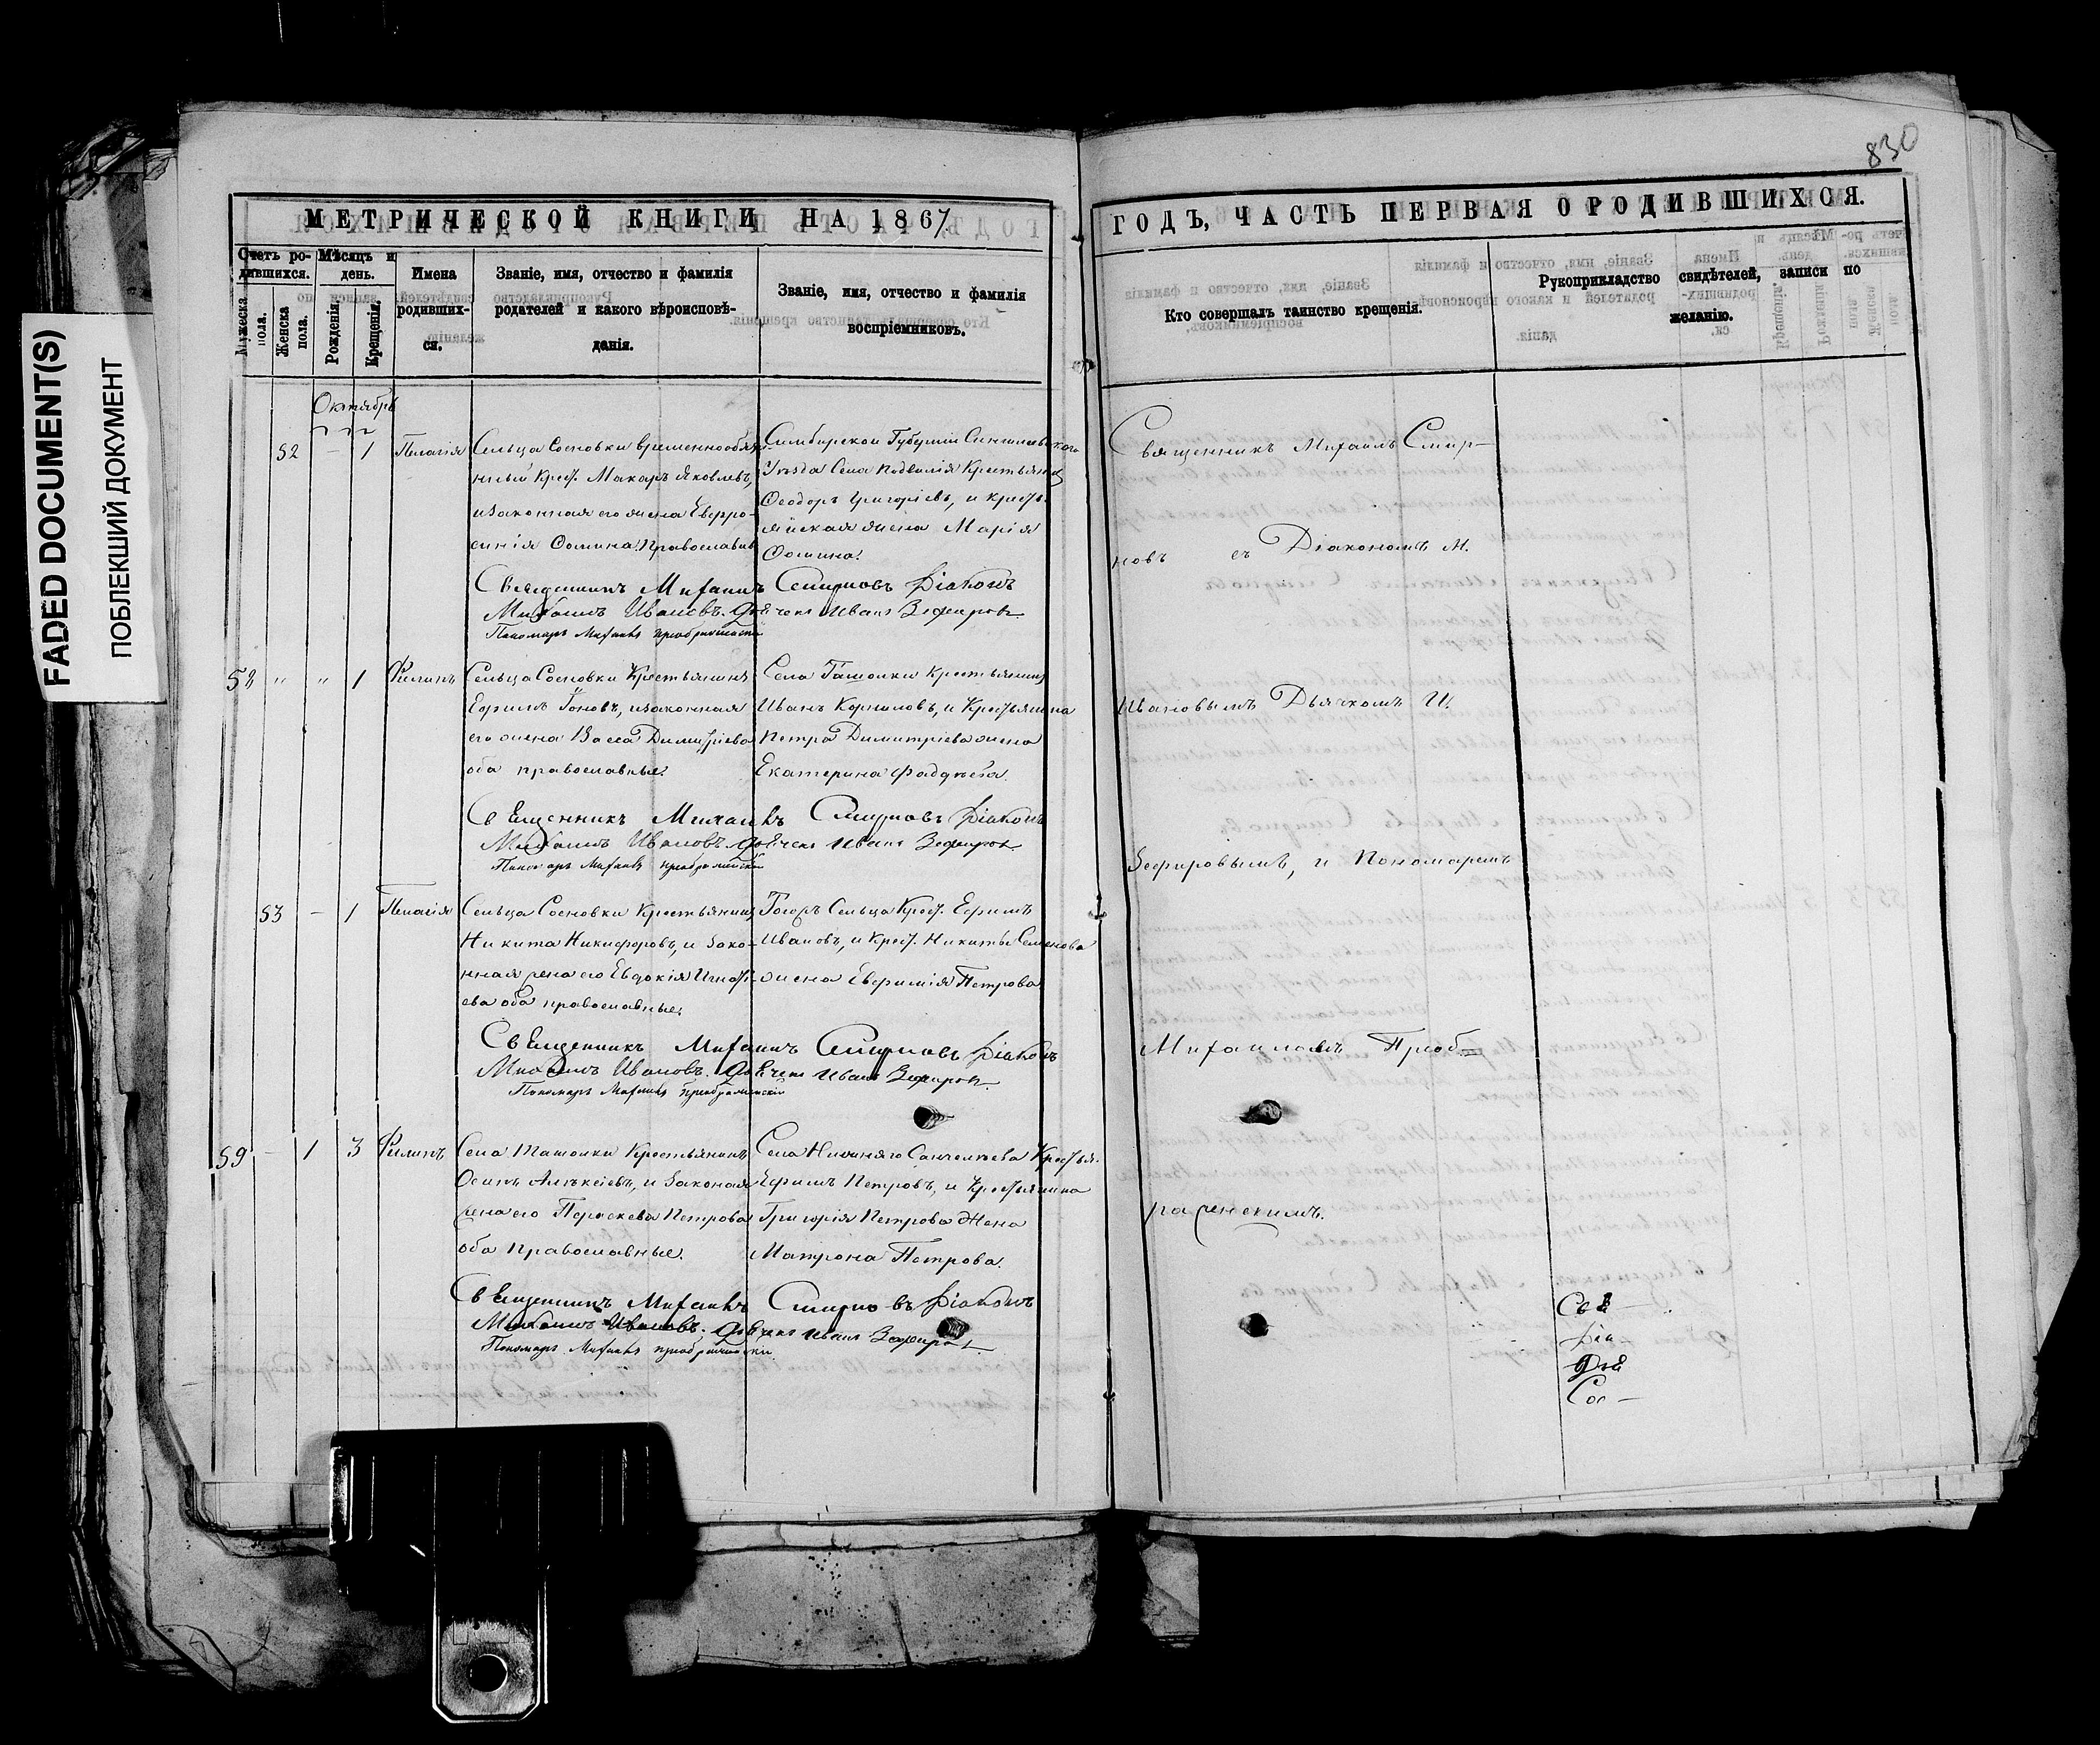 FADED DOCUMENT(S)
ПОБЛЕКШИЙ ДОКУМЕНТ
830
МЕТРИЧЕСКОЙ КНИГИ НА 1867
ГОДЪ, ЧАСТЬ ПЕРВАЯ О РОДИВШИХСЯ.
Счетъ родившихся.
Мужеска пола.
Женска пола.
Мѣсяцъ и день.
Рожденія.
Крещенія.
Имена родивших-ся.
Званіе, имя, отчество и фамилія
родителей и какого вѣроисповѣ-
данія.
Званіе, имя, отчество и фамилія
воспріемниковъ.
Кто совершалъ таинство крещенія.
Рукоприкладство свидѣтелей, записи по
желанію.
Октябрь
52 – 1 Пелагія
Сельца Сосновки временнообяза-
нный Крест. Макаръ Яковлевъ,
изаконная его жена Евфро-
синія Фомина. Православные
Симбирской Губерніи Сингилеевского
Уѣзда Села Подвалія Крестьянинъ
Феодоръ Григоріевъ, и кресть-
янская жена Марія
Фомина.
Священникъ Михаилъ Смирновъ Діаконъ
Михаилъ Ивановъ. Дьячекъ Иванъ Зефировъ
Пономарь Михаилъ Преображенскій
58 " " 1 Филипъ
Сельца Сосновки Крестьянинъ
Ефимъ, изаконная
его жена Васса Димитріева
оба православные.
Села Ташолки Крестьянинъ
Иванъ Корниловъ, и Крестьянина
Петра Димитріева жена
Екатерина Фадѣева.
Священникъ Михаилъ Смирновъ Діаконъ
Михаилъ Ивановъ. Дьячекъ Иванъ Зефировъ
Пономарь Михаилъ Преображенскій
53 – 1 Пелагія
Сельца Сосновки Крестьянинъ
Никита Никифоровъ, и Зако-
нная жена его Евдокія Игнать-
ева оба православные.
Тогожъ Сельца Крест. Ефимъ
Ивановъ, и Крест. Никиты Семенова
жена Евфимія Петрова
Священникъ Михаилъ Смирновъ Діаконъ
Михаилъ Ивановъ. Дьячекъ Иванъ Зефировъ.
Пономарь Михаилъ Преображенскій
59 – 1 3 Филипъ
Села Ташолки Крестьянинъ
Осипъ Алѣксіевъ, и Законая
жена его Параскева Петрова
оба Православные.
Села Нижняго Санчелѣева Крестья.
Ефимъ Петровъ, и Крестьянина
Григорія Петрова Жена
Матрона Петрова.
Священникъ Михаилъ Смирновъ Діаконъ
Михаилъ Ивановъ. Дьячекъ Иванъ Зефировъ.
Пономарь Михаилъ Преображенскій
Священникъ Михаилъ Смир-
новъ съ Діакономъ М.
Ивановымъ Дьячкомъ И.
Зефировымъ, и Пономаремъ
Михаиломъ Преоб=
раженскимъ.
Свя –
Діа
Дья